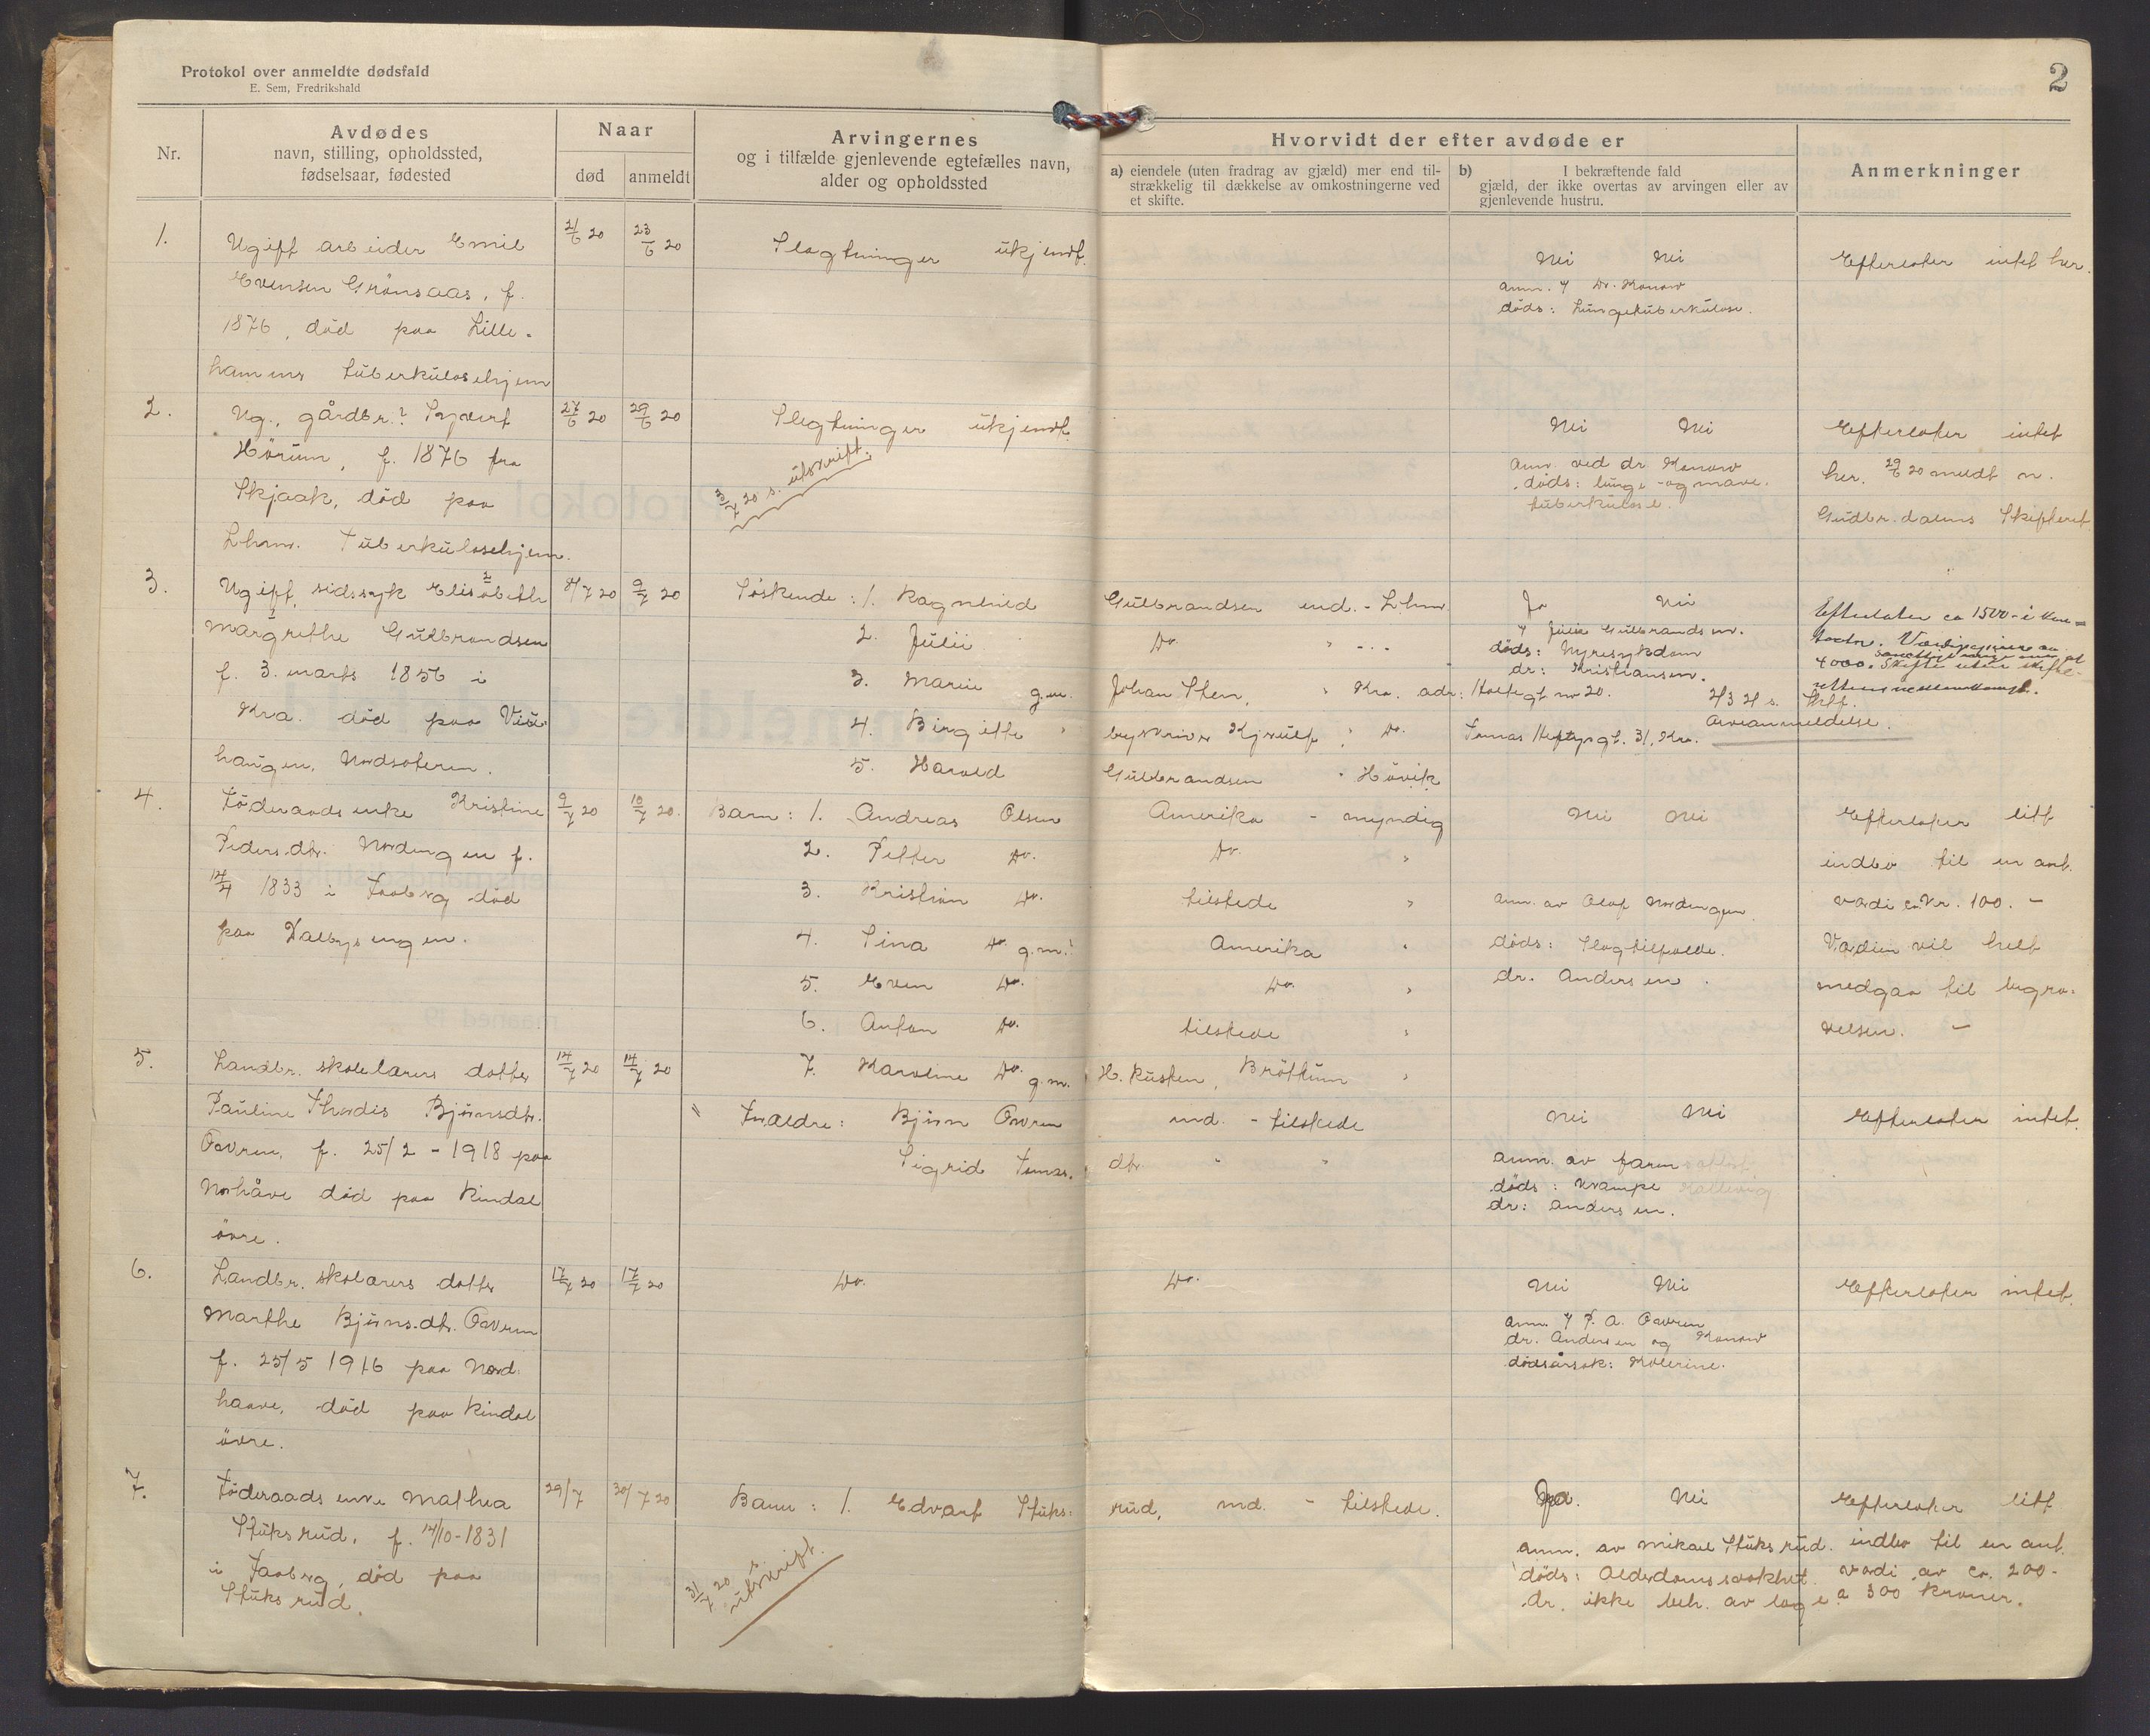 Protokol over anmeldte dødsfald
E. Sem, Fredrikshald
2
Nr.
Avdødes
navn, stilling, opholdssted,
fødselsaar, fødested
Naar
død
anmeldt
Arvingernes
og i tilfælde gjenlevende egtefælles navn,
alder og opholdssted
Hvorvidt der efter avdøde er
a) eiendele (uten fradrag av gjæld) mer end til-
strækkelig til dækkelse av omkostningerne ved
et skifte.
b) I bekræftende fald
gjæld, der ikke overtas av arvingen eller av
gjenlevende hustru.
Anmerkninger
1.
Ugift arbeider Emil
Evensen Grönsaas, f.
1876, död paa Lille-
hammers tuberkulosehjem
21/6 20
23/6 20
Slegtninger ukjendt.
Nei Nei
anm. v Dr. Konow
döds: Lungetuberkulose.
Efterlater intet her.
2.
Ug., gårdbr.? Syvert
Hörum, f. 1876 fra
Skjaak, död paa
Lhmr. tuberkulosehjem.
27/6 20
29/6 20
Slegtninger ukjendt.
3/7 20 s. utskrift.
Nei Nei
anm. ved dr. Konow
döds: lunge- og mave-
tuberkulose.
Efterlater intet
her. 29/6 20 meldt n.
Gudbr.dalens Skifteret
3.
Ugift, sidssyk Elisabeth
Margrethe Gulbrandsen
f. 3. marts 1856 i
Kra. död paa
haugen, Nordseteren.
8/7 20
9/7 20
Söskende: 1. Ragnhild Gulbrandsen md. - Lhmr.
2. Julie Do. " - - -
3. Marie g.m. Johan Sten, " Kra. adr: Holtegt nr 20.
4. Birgitte " byskriver Kjerulf, " Do. Tomas Heftyesgt. 31, Kra.
5. Harald Gulbrandsen " Hövik
Ja Nei
v Julie Gulbrandsen.
döds: Nyresykdom
dr: Kristiansen.
Efterlater ca 1500- i kon-
tanter. Værdipapirer ca
4000. Skifte uten skifte-
rettens mellemkomst.
arveanmeldelse.
4.
Föderaads enke Kristine
Peders.dtr. Nordengen f.
14/4 1833 i Faaberg död
paa Dalbysengen.
9/7 20
10/7 20.
Barn: 1. Andreas Olsen Amerika - myndig
2. Petter Do. Do. "
3. Kristian Do. tilstede "
4. Sina Do. g.m.? Amerika "
5. Even Do. Do. "
6. Anton Do. tilstede "
7. Karoline Do. g.m. H. Kusten, Bröttum "
Nei Nei
anm. av Olaf Nordengen.
döds: Slagtilfælde.
dr. Andersen.
Efterlater litt
indbo til en ant.
værdi ca kr. 100. -
Værdien vil helt
medgaa til begra-
velsen. -
5.
Landbr. skolelærers datter
Pauline Thordis Bjørnsdtr.
Oavren, f. 25/2 - 1918 paa
Norhåve död paa Rindal
övre.
14/7 20
14/7 20
Forældre: Bjørn Oavren md. - tilstede
Sigrid Tomas. dtr. " "
Nei Nei
anm. av faren
döds: Krampe
dr: Andersen.
Efterlater intet.
6.
Landbr. skolærers datter
Marthe Bjørns.dtr. Oavren
f. 25/5 1916 paa Nord-
haave, död paa Rindal
övre.
17/7 20
17/7 20
Do. Do.
Nei Nei
anm. v P. A. Oavren
dr. Andersen og Konow
dödsårsak: Kolerine.
Efterlater intet.
7.
Föderaads enke Mathea
Stuksrud, f. 14/10-1831
i Faaberg, död paa
Stuksrud.
29/7
30/7 20
Barn: 1. Edvart Stuks- rud, md. - tilstede.
31/7 20 s. utskrift.
Ja. Nei
anm. av Mikael Stuksrud.
döds: Alderdomssvakhet.
dr. ikke beh. av læge
Efterlater litt
indbo til en ant.
værdi av ca. 200-
a 300 kroner.